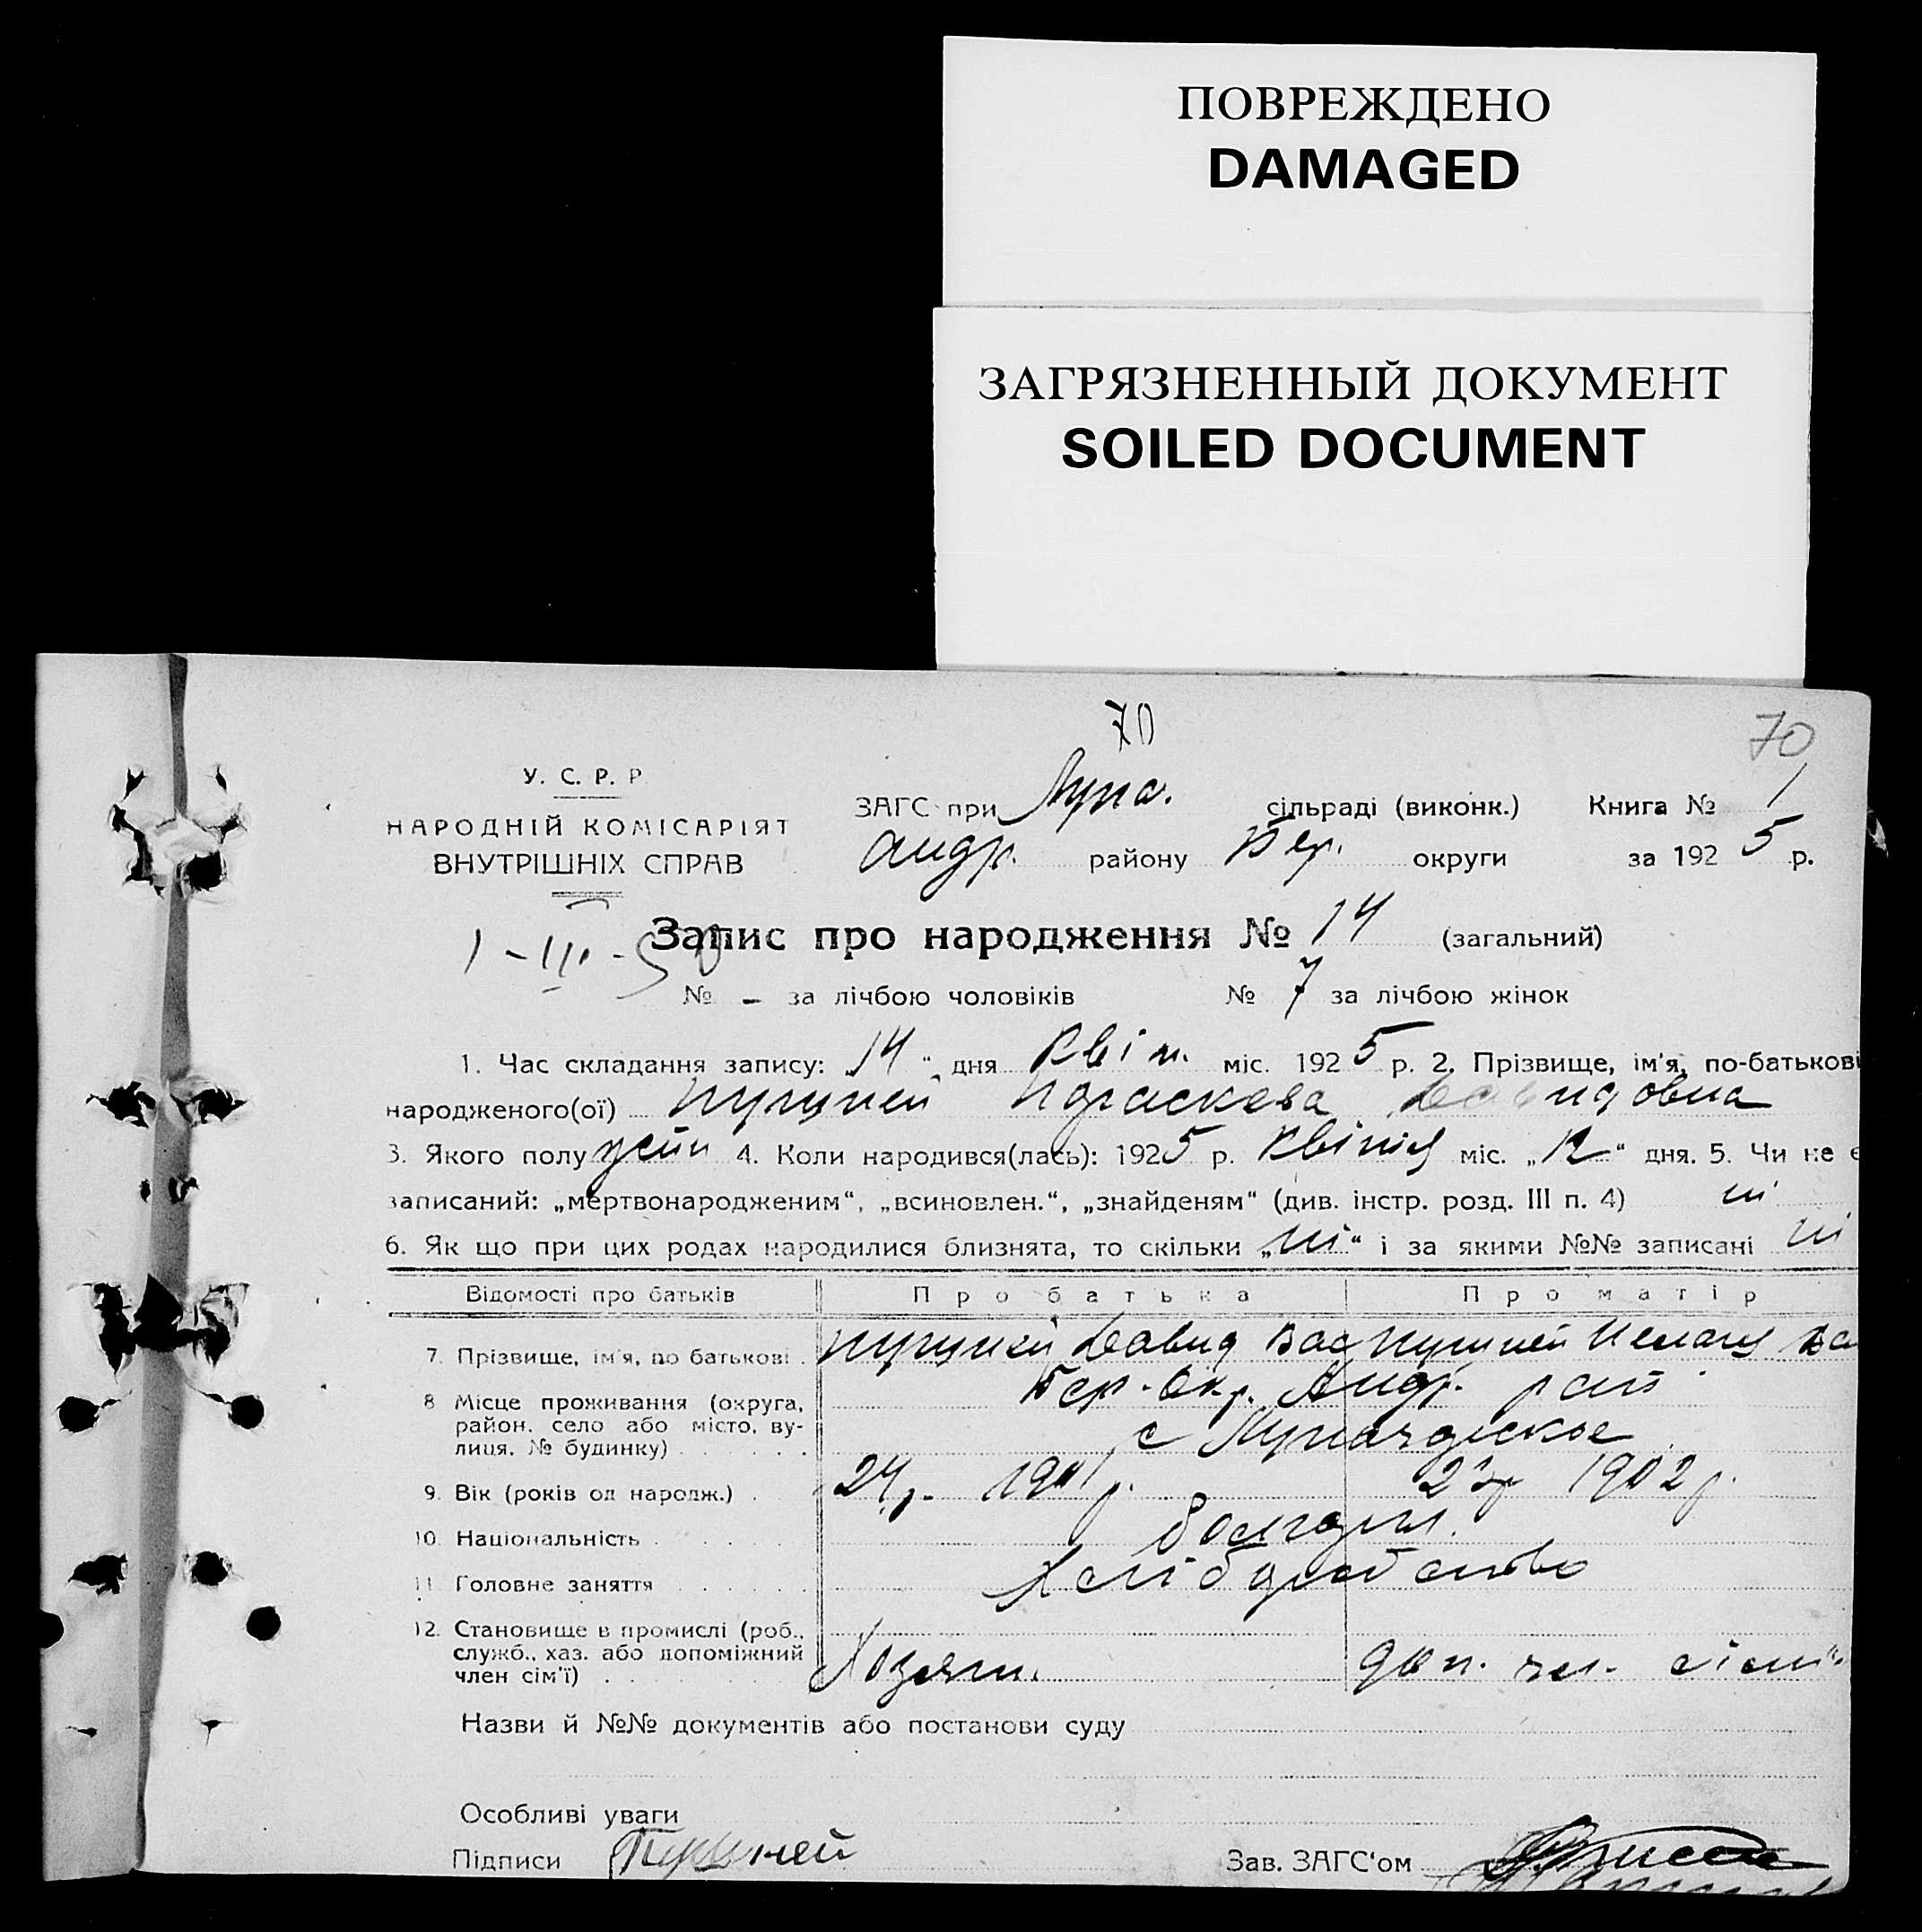 ПОВРЕЖДЕНО
DAMAGED
ЗАГРЯЗНЕННЫЙ ДОКУМЕНТ
SOILED DOCUMENT
70
70
У. С. Р. Р
НАРОДНІЙ КОМІСАРІЯТ
ВНУТРІШНІХ СПРАВ
ЗАГС при Луна. сільраді (виконк.) Книга № 1
Андр. району Бер. округи за 1925 р.
Запис про народження № 14 (загальний)
1-III-50
№ - за лічбою чоловіків № 7 за лічбою жінок
1. Час складання запису: „14“ дня Квіт. міс. 1925 р. 2. Прізвище, ім'я, по-батькові
народженого(ої) Пушней Параскева Давидовна
3. Якого полу жін 4. Коли народився(лась): 1925 р. Квітня міс. „12“ дня. 5. Чи не є
записаний: „мертвонародженим“, „всиновлен.“, „знайденям“ (див. інстр. розд. III п. 4) ні
6. Як що при цих родах народилися близнята, то скільки „ні“ і за якими №№ записані ні
Відомості про батьків Про батька Про матір
7. Прізвище, ім'я, по батькові . Пушней Давид Вас Пушней
8 Місце проживання (округа, район, село або місто, вулиця, № будинку) . Бер. Окр. Андр. рай.
с Луначарское
9. Вік (років од народж.) . 24 р. 1901 р. 23 р 1902 р.
10 Національність . болгари.
11 Головне заняття Хлібробство
12. Становище в промислі (роб., служб., хаз. або допоміжний член сім'ї) . Хозяин. доп. чл. сім'ї.
Назви й №№ документів або постанови суду
Особливі уваги
Підписи Пушней Зав. ЗАГС'ом